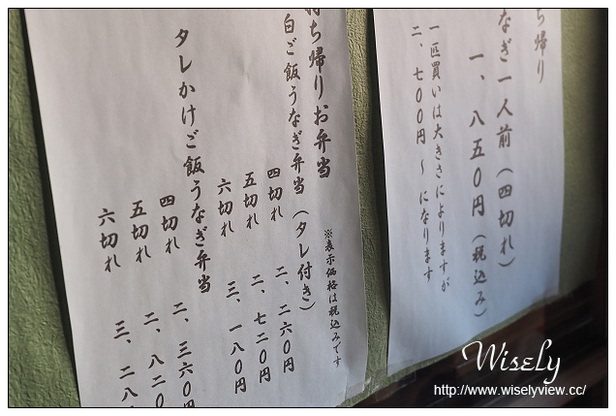 ち帰り
なぎ一人前(四切れ)
一、八五0円(税込み)
一匹買いは大きさによりますが
二、七00円~になります
持ち帰りお弁当
※表示価格は税込みです
白ご飯うなぎ弁当(タレ付き)
四切れ 二、二六0円
五切れ 二、七二0円
六切れ 三、一八0円
タレかけご飯うなぎ弁当
四切れ 二、三六0円
五切れ 二、八二0
六切れ 三、二八
Wisely
http://www.wiselyview.cc/